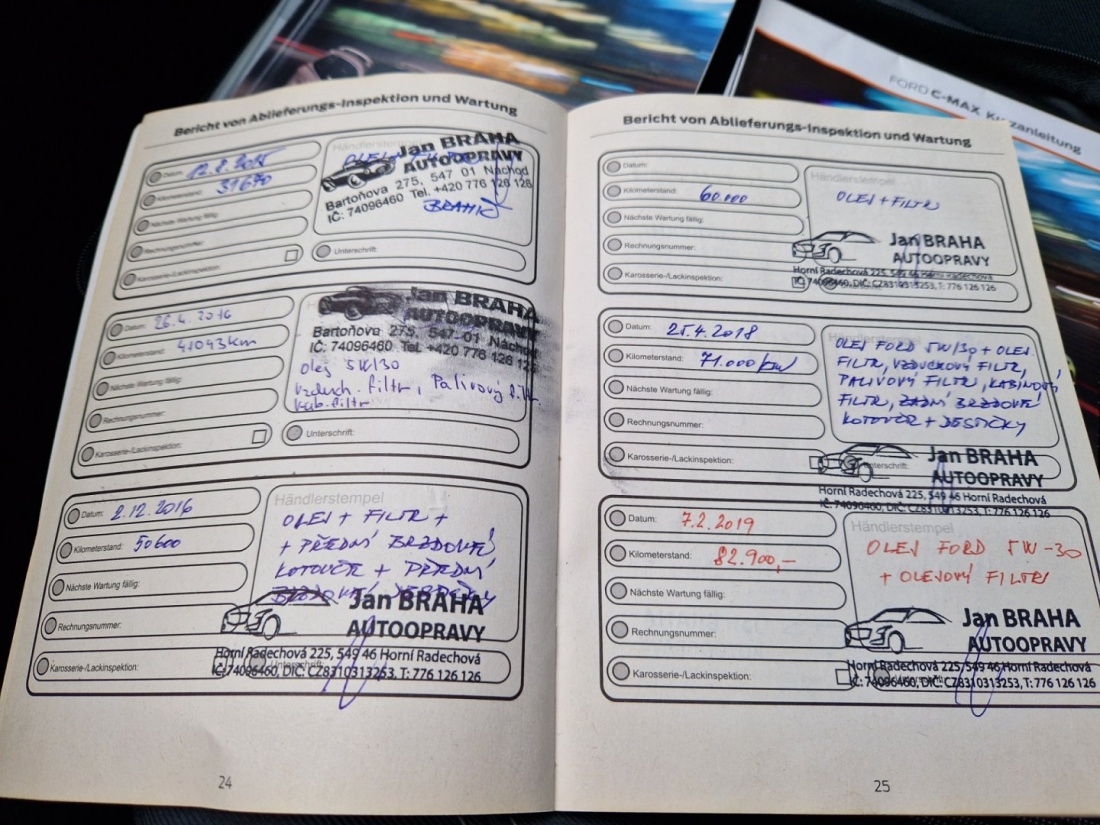 FORD C-MAX Kurzanleitung
Bericht von Ablieferungs-Inspektion und Wartung
Datum: 12.8.2015
Kilometerstand: 39670
Nächste Wartung fällig:
Rechnungsnummer:
Karosserie-/Lackinspektion:
Händlerstempel
OLEJ
Jan BRAHA
AUTOOPRAVY
Bartoňova 275, 547 01 Náchod
IČ: 74096460 Tel. +420 776 126 126
Unterschrift:
Datum: 26.4.2016
Kilometerstand: 41043 km
Nächste Wartung fällig:
Rechnungsnummer:
Karosserie-/Lackinspektion:
Jan BRAHA
AUTOOPRAVY
Bartoňova 275, 547 01 Náchod
IČ: 74096460 Tel. +420 776 126 126
olej 5W/30
vzduch. filtr, Palivový filtr.
kab. filtr
Unterschrift:
Datum: 2.12.2016
Kilometerstand: 50600
Nächste Wartung fällig:
Rechnungsnummer:
Karosserie-/Lackinspektion:
Händlerstempel
OLEJ + FILTR +
+ PŘEDNÍ BRZDOVÉ
KOTOUČE + PŘEDNÍ
Jan BRAHA
AUTOOPRAVY
Horní Radechová 225, 549 46 Horní Radechová
IČ: 74096460, DIČ: CZ8310313253, T: 776 126 126
Unterschrift:
24
Bericht von Ablieferungs-Inspektion und Wartung
Datum:
Kilometerstand: 60.000
Nächste Wartung fällig:
Rechnungsnummer:
Karosserie-/Lackinspektion:
Händlerstempel
OLEJ + FILTR
Jan BRAHA
AUTOOPRAVY
Horní Radechová 225, 549 46 Horní Radechová
IČ: 74096460, DIČ: CZ8310313253, T: 776 126 126
Datum: 25.4.2018
Kilometerstand: 71.000 km
Nächste Wartung fällig:
Rechnungsnummer:
Karosserie-/Lackinspektion:
OLEJ FORD 5W/30 + OLEJ.
FILTR, VZDUCHOVÝ FILTR,
PALIVOVÝ FILTR, KABINOVÝ
FILTR, ZADNÍ BRZDOVÉ
KOTOUČE + DESTIČKY
Unterschrift:
Jan BRAHA
AUTOOPRAVY
Horní Radechová 225, 549 46 Horní Radechová
IČ: 74096460, DIČ: CZ8310313253, T: 776 126 126
Datum: 7.2.2019
Kilometerstand: 82.900,-
Nächste Wartung fällig:
Rechnungsnummer:
Karosserie-/Lackinspektion:
Händlerstempel
OLEJ FORD 5W-30
+ OLEJOVÝ FILTR
Jan BRAHA
AUTOOPRAVY
Horní Radechová 225, 549 46 Horní Radechová
IČ: 74096460, DIČ: CZ8310313253, T: 776 126 126
25